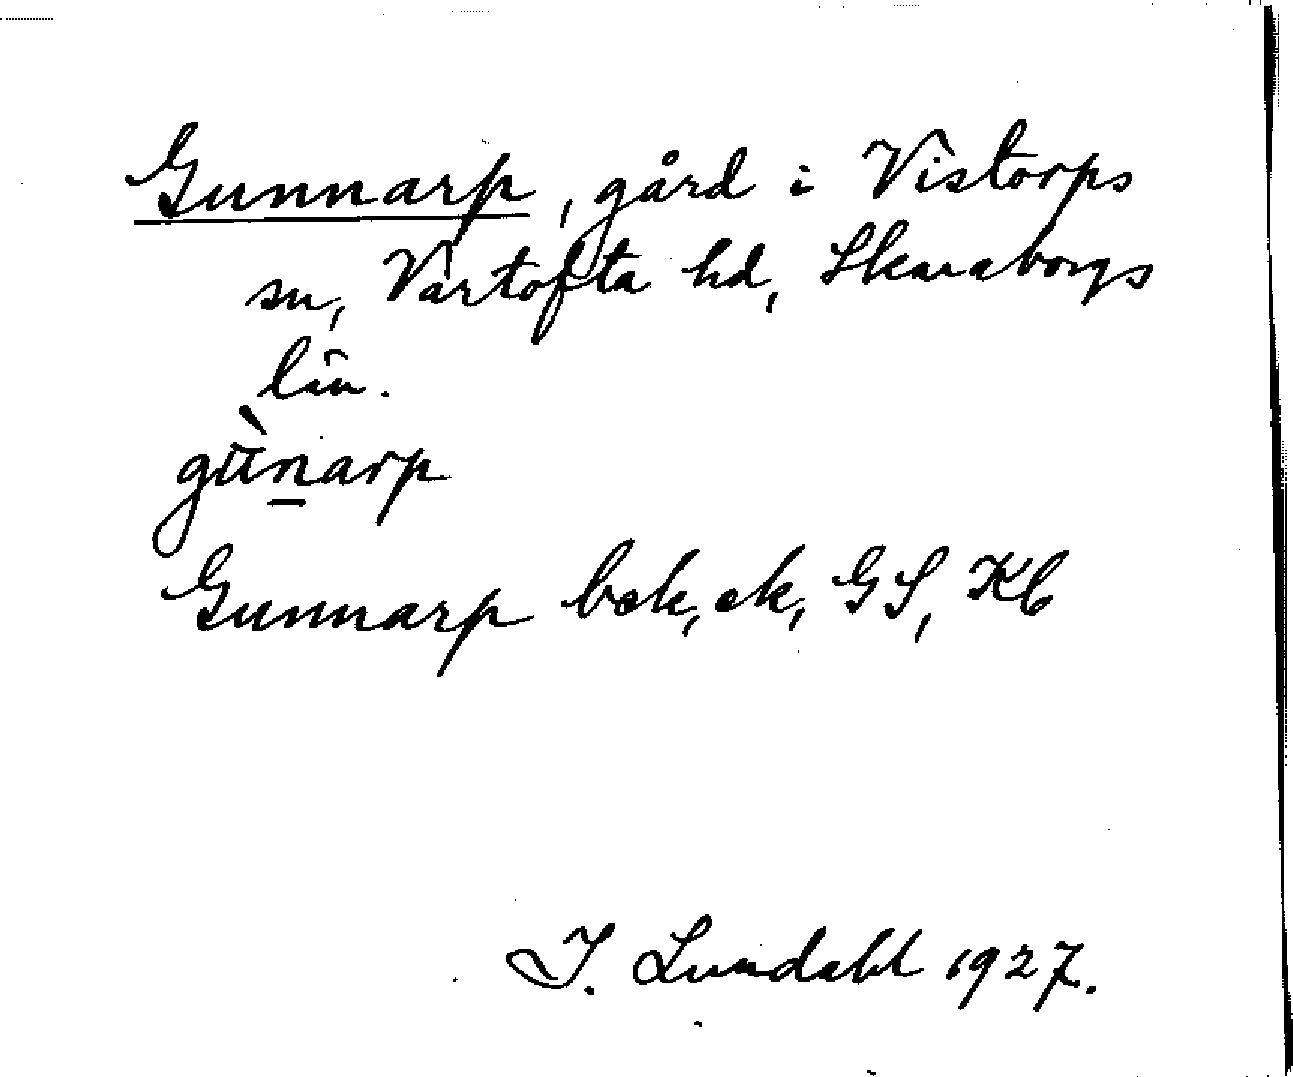 Gunnarp, gård i Vistorps
sn, Vartofta hd, Skaraborgs
län.
gùn̲arp
Gunnarp bek, ek, GS, Kb
I. Lundahl 1927.